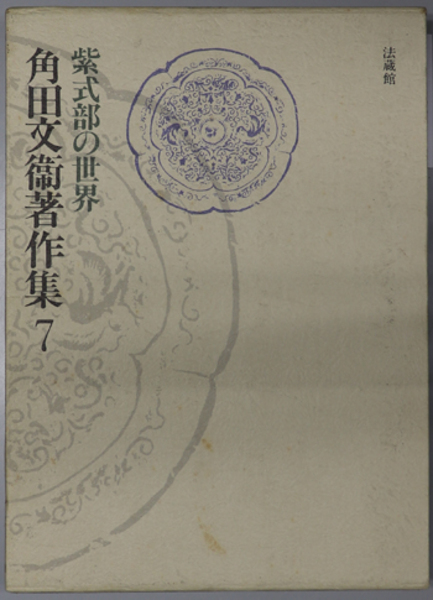 法蔵館
紫式部の世界
角田文衞著作集 7